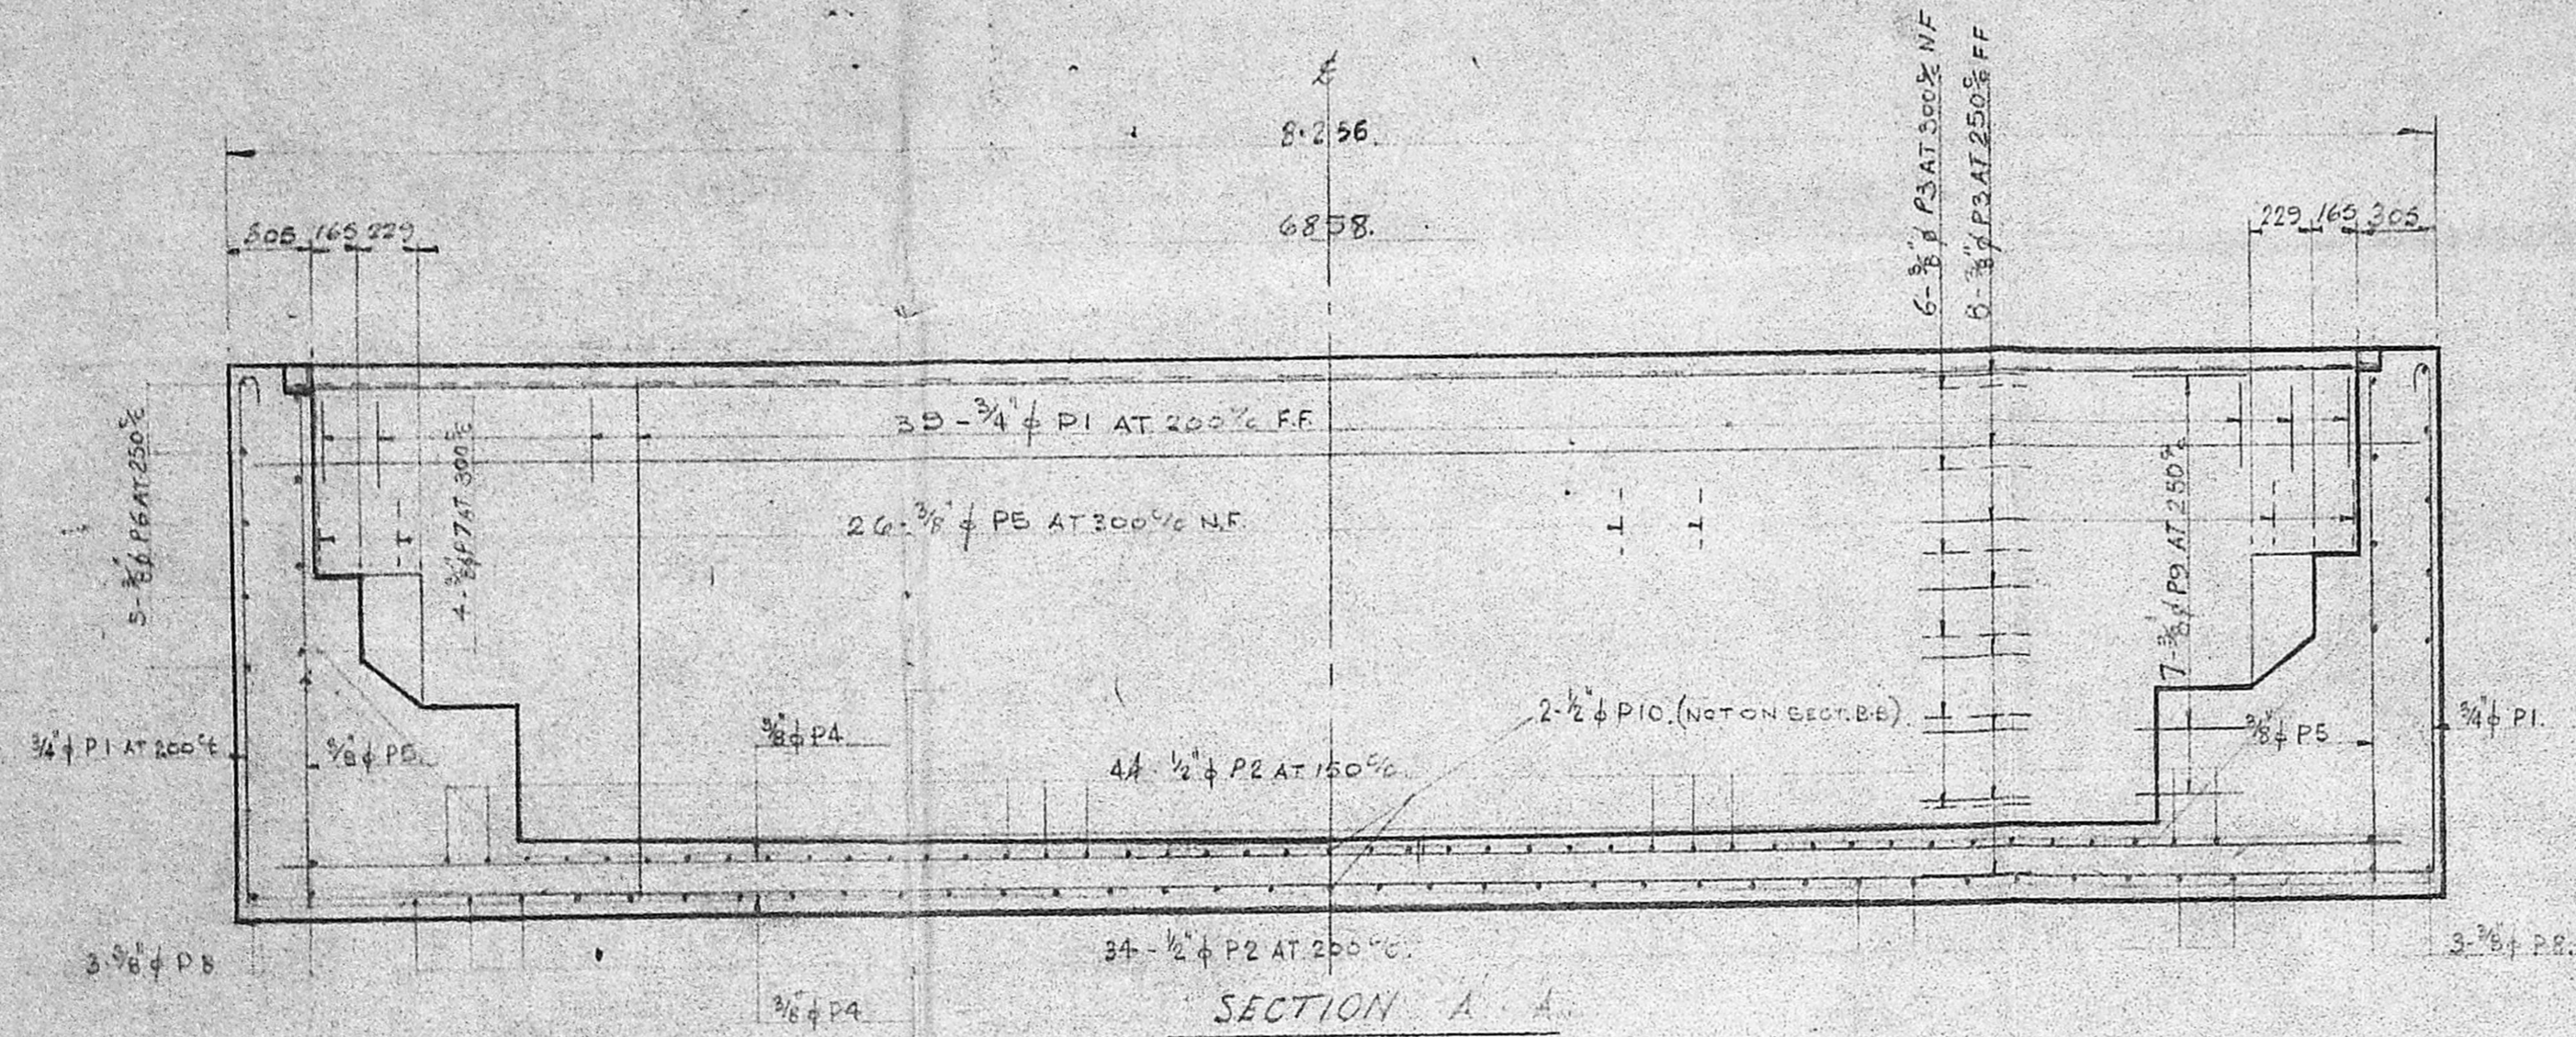 ℄
8.256.
6858.
305 165 229
229 165 305
6-3/8"ϕ P3 AT 300 c/c NF
8-3/8"ϕ P3 AT 250 c/c FF
39-3/4"ϕ P1 AT 200 c/c F.F.
26-3/8"ϕ P5 AT 300 c/c N.F.
5-3/8"ϕ P6 AT 250 c/c
4-3/8"ϕ P7 AT 300 c/c
7-3/8"ϕ P9 AT 250 c/c
3/4"ϕ P1 AT 200 c/c
3/8"ϕ P5
3/8"ϕ P4
2-1/2"ϕ P10. (NOT ON SECT. B-B)
3/8"ϕ P5
3/4"ϕ P1.
44-1/2"ϕ P2 AT 150 c/c.
3-3/8"ϕ P8
34-1/2"ϕ P2 AT 200 c/c.
3-3/8"ϕ P8.
3/8"ϕ P4
SECTION A-A